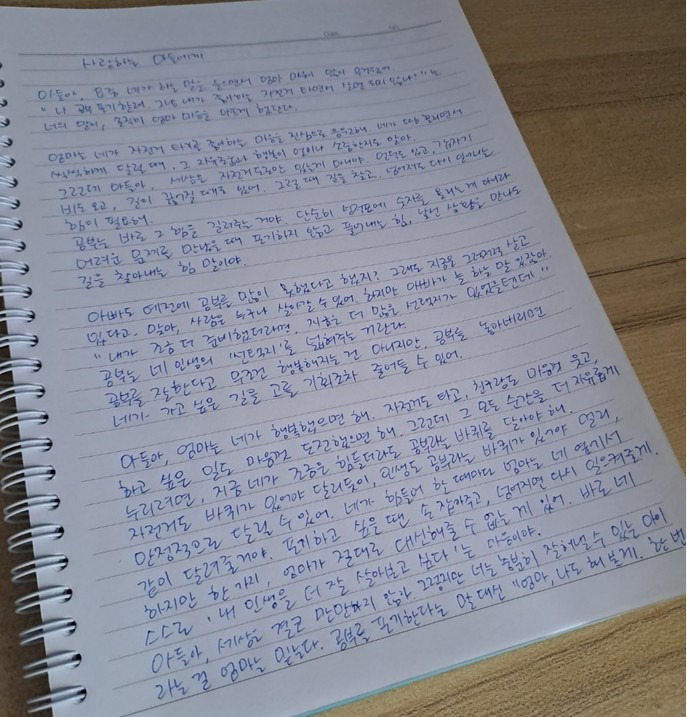 사랑하는 아들에게
아들아, 요즘 네가 하는 말을 들으면서 엄마 마음이 무거웠어.
"나 공부 포기할래. 그냥 내가 좋아하는 자전거 타면서 살면 되지 않나?"는
너의 말이, 솔직히 엄마 마음을 아프게 했단다.
엄마는 네가 자전거 타기를 좋아하는 마음을 진심으로 응원해. 네가 다리를 굴리면서
씩씩하게 달릴 때, 그 자유로움과 행복이 얼마나 소중한지도 알아.
그런데 아들아, 세상은 자전거도로만 있는게 아니야. 언덕도 있고, 갑자기
비도 오고, 길이 끊어질 때도 있어. 그럴 때 길을 찾고, 넘어져도 다시 일어나는
힘이 필요해.
공부는 바로 그 힘을 길러주는 거야. 단순히 성적표에 숫자를 올리는게 아니라
어려운 문제를 만났을 때 포기하지 않고 풀어내는 힘, 낯선 상황을 만나도
길을 찾아내는 힘 말이야.
아빠도 예전에 공부를 많이 못했다고 했지? 그래도 지금은 그럭저럭 살고
있다고. 맞아, 사람은 누구나 살아갈 수 있어. 하지만 아빠가 늘 하는 말 있잖아.
"내가 조금 더 준비했더라면, 지금은 더 많은 선택지가 있었을텐데"
공부는 네 인생의 '선택지'를 넓혀주는 거란다.
공부를 잘한다고 무조건 행복해지는 건 아니지만, 공부를 놓아버리면
네가 가고 싶은 길을 고를 기회조차 줄어들 수 있어.
아들아, 엄마는 네가 행복했으면 해. 자전거도 타고, 친구랑도 마음껏 웃고,
하고 싶은 일도 마음껏 도전했으면 해. 그런데 그 모든 순간을 더 자유롭게
누리려면, 지금 네가 조금은 힘들더라도 공부라는 바퀴를 달아야 해.
자전거도 바퀴가 있어야 달리듯이, 인생도 공부라는 바퀴가 있어야 멀리,
안정적으로 달릴 수 있어. 네가 힘들어 할 때마다 엄마는 네 옆에서
같이 달려줄거야. 포기하고 싶을 땐 손 잡아주고, 넘어지면 다시 일으켜줄게.
하지만 한 가지, 엄마가 절대로 대신해줄 수 없는 게 있어. 바로 네
스스로 '내 인생을 더 잘 살아보고 싶다'는 마음이야.
아들아, 세상은 결코 만만하지 않아. 그렇지만 너는 충분히 잘해낼 수 있는 아이
라는 걸 엄마는 믿는다. 공부를 포기한다는 말 대신 "엄마, 나도 해 볼게. 한 번